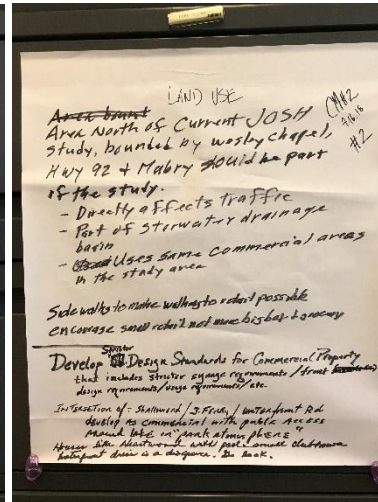 LAND USE
CM#2
7.16.18
#2
Area bound
Area North of Current JOSH
study, bounded by wesley chapel,
Hwy 92 & Mabry should be part
if the study.
- Directly affects traffic
- Part of storwater drainage
basin
- Uses same commercial areas
in the study area
Sidewalks to make walking to retail possible
encourage small retail not more big box + grocery
Stricter
Develop Design Standards for Commercial Property
that includes stricter signage requirements / front
design requirements / usage requirements / etc.
INTERSECTION of - Shallowford / J. Ferry / Waterfront Rd
develop as commercial with public access
around lake in "park atmosphere"
Houses like Heartwood with pool + small clubhouse
Waterfront drive is a disgrace. Go look.